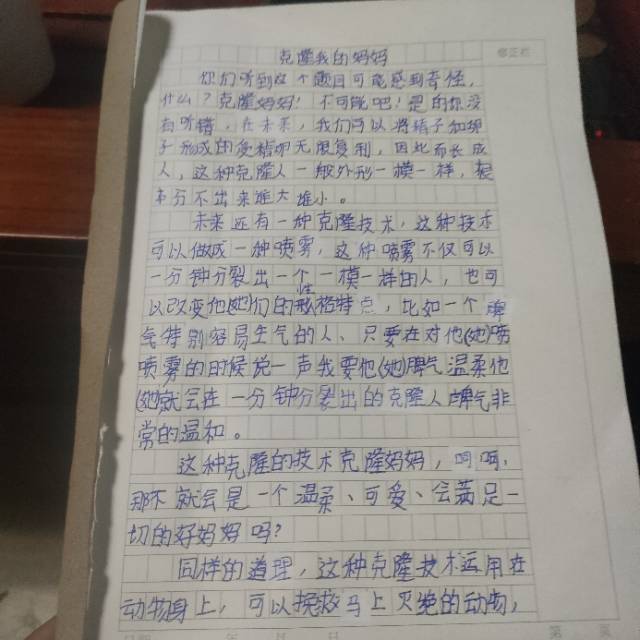 克隆我的妈妈
修正栏
你们听到这个题目可能感到奇怪，
什么？克隆妈妈！不可能吧！是的你没
有听错，在未来，我们可以将精子和卵
子形成的受精卵无限复制，因此而长成
人，这种克隆人一般外形一模一样，根
本分不出来谁大谁小。
未来还有一种克隆技术，这种技术
可以做成一种喷雾，这种喷雾不仅可以
一分钟分裂出一个一模一样的人，也可
以改变他(她)们的性格特点，比如一个脾
气特别容易生气的人、只要在对他(她)喷
喷雾的时候说一声我要他(她)脾气温柔他
(她)就会在一分钟分裂出的克隆人脾气非
常的温和。
这种克隆的技术克隆妈妈，呵呵，
那不就会是一个温柔、可爱、会满足一
切的好妈妈吗？
同样的道理，这种克隆技术运用在
动物身上，可以挽救马上灭绝的动物，
年 月 日
第 页